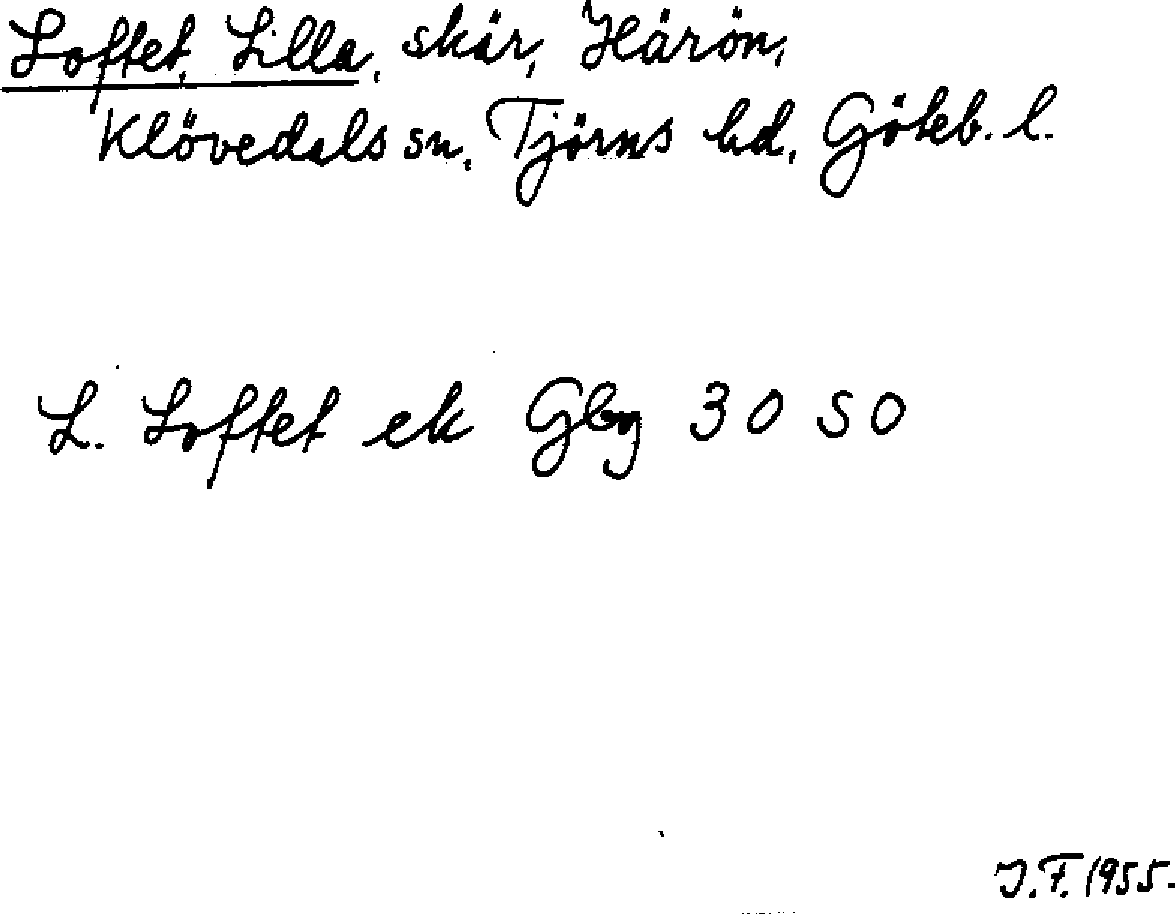 Loftet, Lilla, skär, Härön,
Klövedals sn, Tjörns hd, Göteb. l.
L. Loftet ek Gbg 30 SO
J.F. 1955.